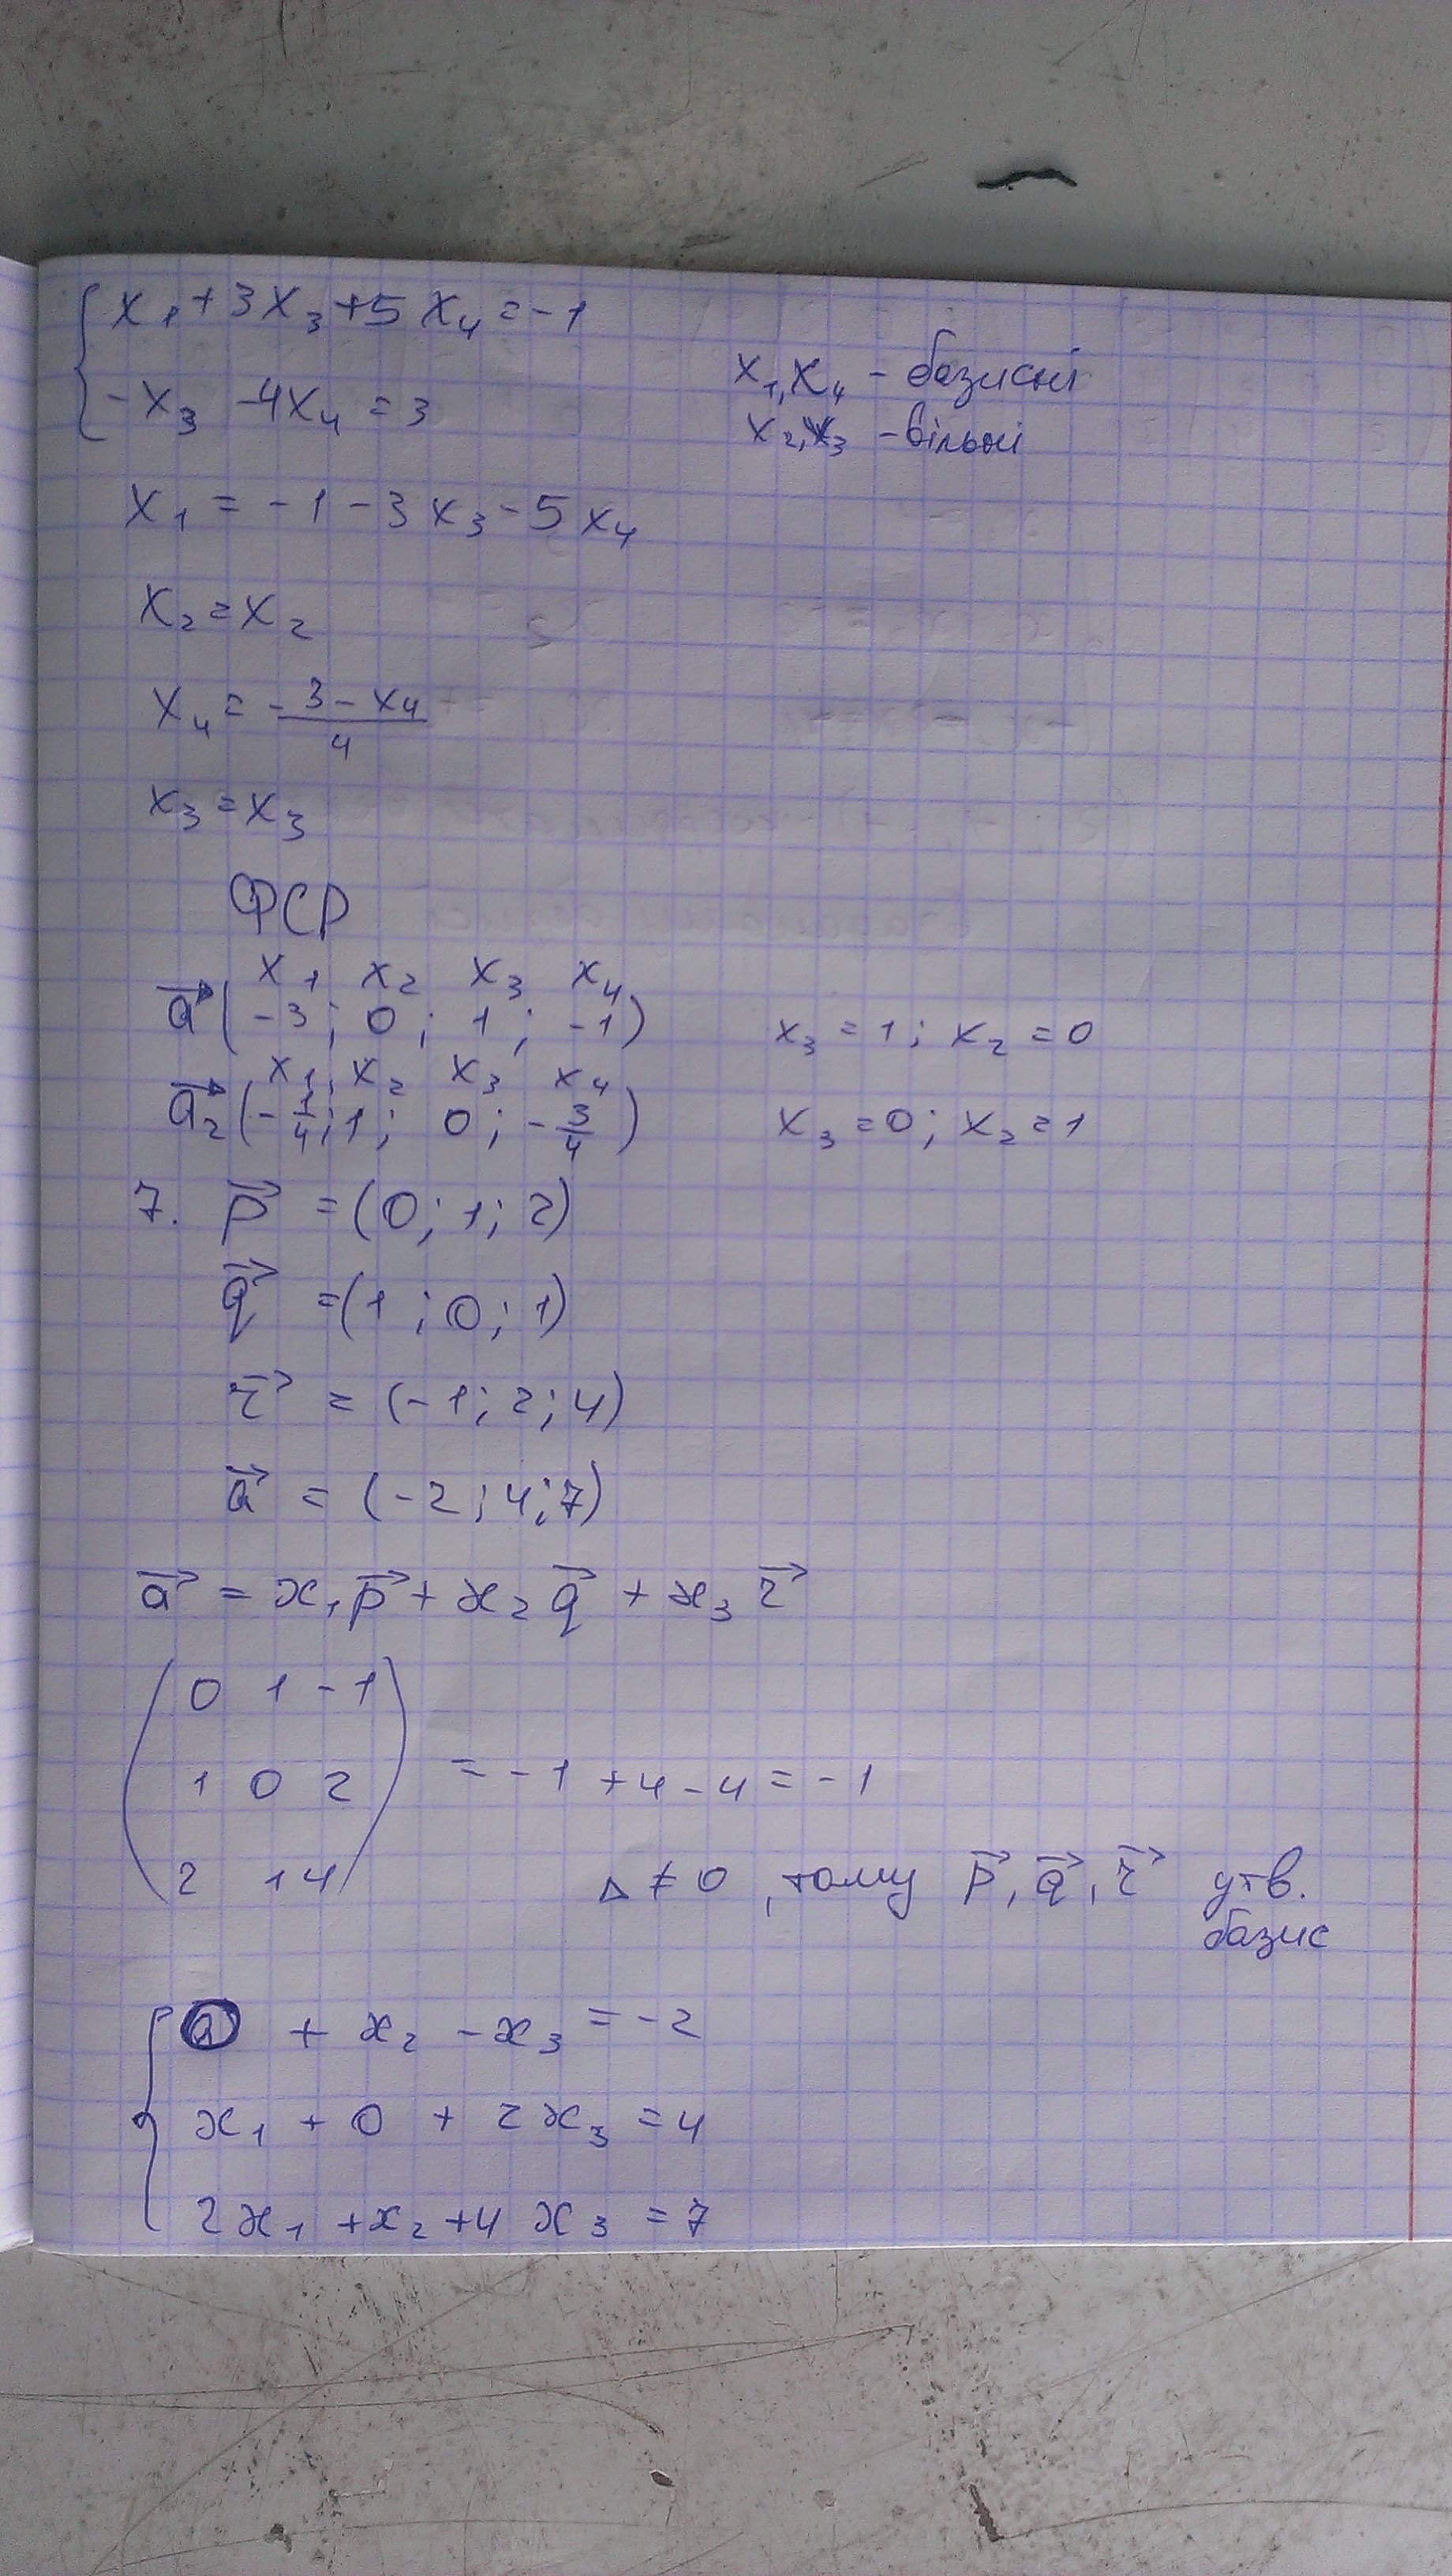 x₁ + 3x₃ + 5x₄ = -1
-x₃ - 4x₄ = 3
x₁, x₄ - базисні
x₂, x₃ - вільні
x₁ = -1 - 3x₃ - 5x₄
x₂ = x₂
x₄ = - (3 - x₄)/4
x₃ = x₃
ФСР
x₁ x₂ x₃ x₄
a⃗ (-3; 0; 1; -1) x₃ = 1; x₂ = 0
x₁, x₂ x₃ x₄
a⃗₂ (-1/4; 1; 0; -3/4) x₃ = 0; x₂ = 1
7. p⃗ = (0; 1; 2)
q⃗ = (1; 0; 1)
r⃗ = (-1; 2; 4)
a⃗ = (-2; 4; 7)
a⃗ = x₁p⃗ + x₂q⃗ + x₃r⃗
0 1 -1
1 0 2 = -1 + 4 - 4 = -1
2 1 4
Δ ≠ 0, тому p⃗, q⃗, r⃗ утв.
базис
0 + x₂ - x₃ = -2
x₁ + 0 + 2x₃ = 4
2x₁ + x₂ + 4x₃ = 7